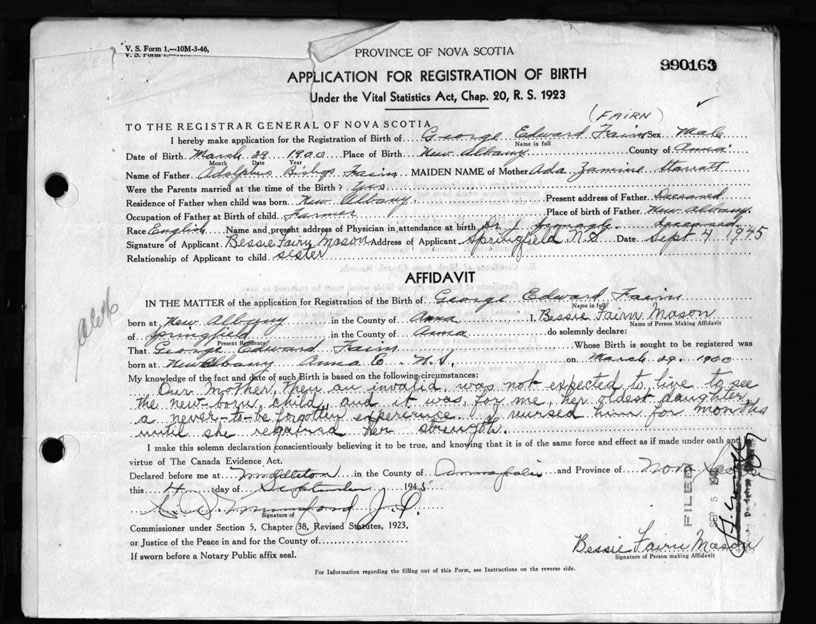 V. S. Form 1.—10M-3-46,
PROVINCE OF NOVA SCOTIA
990163
APPLICATION FOR REGISTRATION OF BIRTH
Under the Vital Statistics Act, Chap. 20, R. S. 1923
(FAIRN)
TO THE REGISTRAR GENERAL OF NOVA SCOTIA
I hereby make application for the Registration of Birth of George Edward Fairn Sex Male
Name in full
Date of Birth March 29 1900 Place of Birth New Albany County of Anna.
Month Date Year
Name of Father Adolphus Fairn MAIDEN NAME of Mother Ada Starratt
Were the Parents married at the time of the Birth? Yes
Residence of Father when child was born New Albany Present address of Father Deceased
Occupation of Father at Birth of child Farmer Place of birth of Father New Albany
Race English Name and present address of Physician in attendance at birth Dr. J. deceased
Signature of Applicant Bessie Fairn Mason Address of Applicant Springfield N.S Date Sept 4 1945
Relationship of Applicant to child sister
AFFIDAVIT
IN THE MATTER of the application for Registration of the Birth of George Edward Fairn
Name in full
born at New Albany in the County of Anna I, Bessie Fairn Mason
Name of Person Making Affidavit
of Springfield in the County of Anna do solemnly declare:
Present Residence
That George Edward Fairn Whose Birth is sought to be registered was
born at New Albany Anna C. N.S. on March 29. 1900
My knowledge of the fact and date of such Birth is based on the following circumstances:
Our mother, then an invalid was not expected to live to see
the new-born child, and it was, for me, her oldest daughter,
a never-to-be forgotten experience. I nursed him for months
until she regained her strength.
I make this solemn declaration conscientiously believing it to be true, and knowing that it is of the same force and effect as if made under oath and
virtue of The Canada Evidence Act.
Declared before me at Middleton in the County of Annapolis and Province of Nova Scotia
this 4th day of September 1945
Signature of
Commissioner under Section 5, Chapter 38, Revised Statutes, 1923,
or Justice of the Peace in and for the County of
If sworn before a Notary Public affix seal.
FILED
SEP 5
Bessie Fairn Mason
Signature of Person making Affidavit
For Information regarding the filling out of this Form, see Instructions on the reverse side.